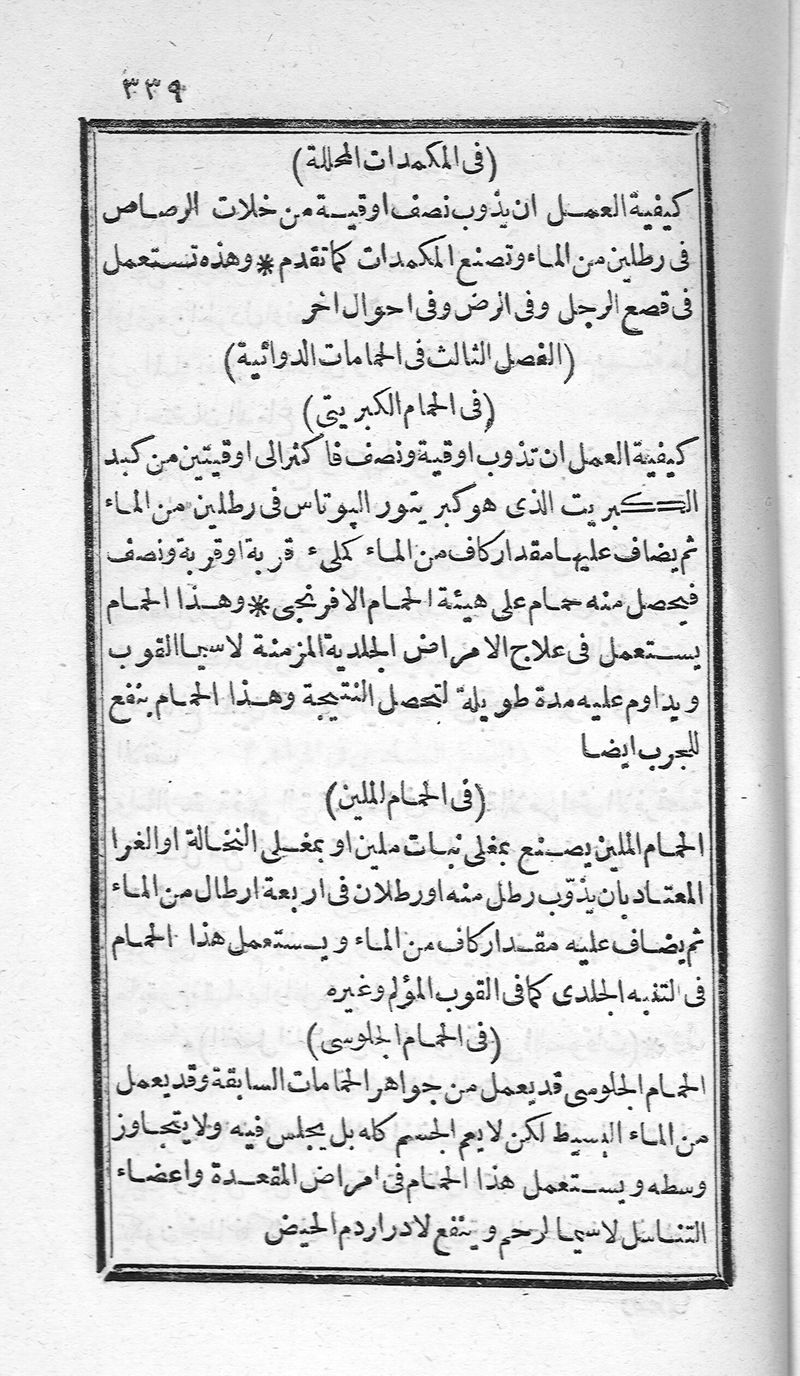 ٣٣٩
(فى المكمدات المحللة)
كيفية العمل ان يذوب نصف اوقية من خلات الرصاص
فى رطلين من الماء وتصنع المكمدات كما تقدم * وهذه تستعمل
فى قصع الرجل وفى الرض وفى احوال اخر
(الفصل الثالث فى الحمامات الدوائية)
(فى الحمام الكبريتى)
كيفية العمل ان تذوب اوقية ونصف فاكثر الى اوقيتين من كبد
الكبريت الذى هو كبريتور الپوتاس فى رطلين من الماء
ثم يضاف عليها مقدار كاف من الماء كملىء قربة او قربة ونصف
فيحصل منه حمام على هيئة الحمام الافرنجى * وهذا الحمام
يستعمل فى علاج الامراض الجلدية المزمنة لاسيما القوب
ويداوم عليه مدة طويلة لتحصل النتيجة وهذا الحمام ينفع
للجرب ايضا
(فى الحمام الملين)
الحمام الملين يصنع بمغلى نبات ملين او بمغلى النخالة او الغرا
المعتاد بان يذوّب رطل منه اورطلان فى اربعة ارطال من الماء
ثم يضاف عليه مقدار كاف من الماء ويستعمل هذا الحمام
فى التنبه الجلدى كما فى القوب المؤلم وغيره
(فى الحمام الجلوسى)
الحمام الجلوسى قد يعمل من جواهر الحمامات السابقة وقد يعمل
من الماء البسيط لكن لا يعم الجسم كله بل يجلس فيه ولا يتجاوز
وسطه ويستعمل هذا الحمام فى امراض المقعدة واعضاء
التناسل لاسيما الرحم وينفع لادرار دم الحيض